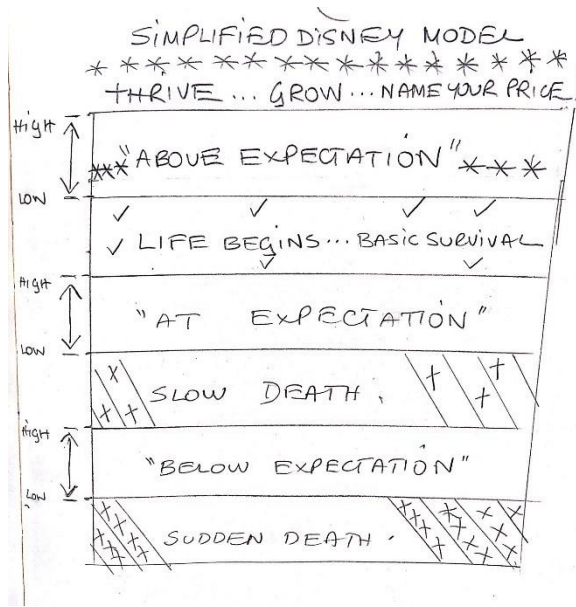 SIMPLIFIED DISNEY MODEL
THRIVE... GROW... NAME YOUR PRICE
HIGH
"ABOVE EXPECTATION"
LOW
LIFE BEGINS... BASIC SURVIVAL
HIGH
"AT EXPECTATION"
LOW
SLOW DEATH.
HIGH
"BELOW EXPECTATION"
LOW
SUDDEN DEATH.